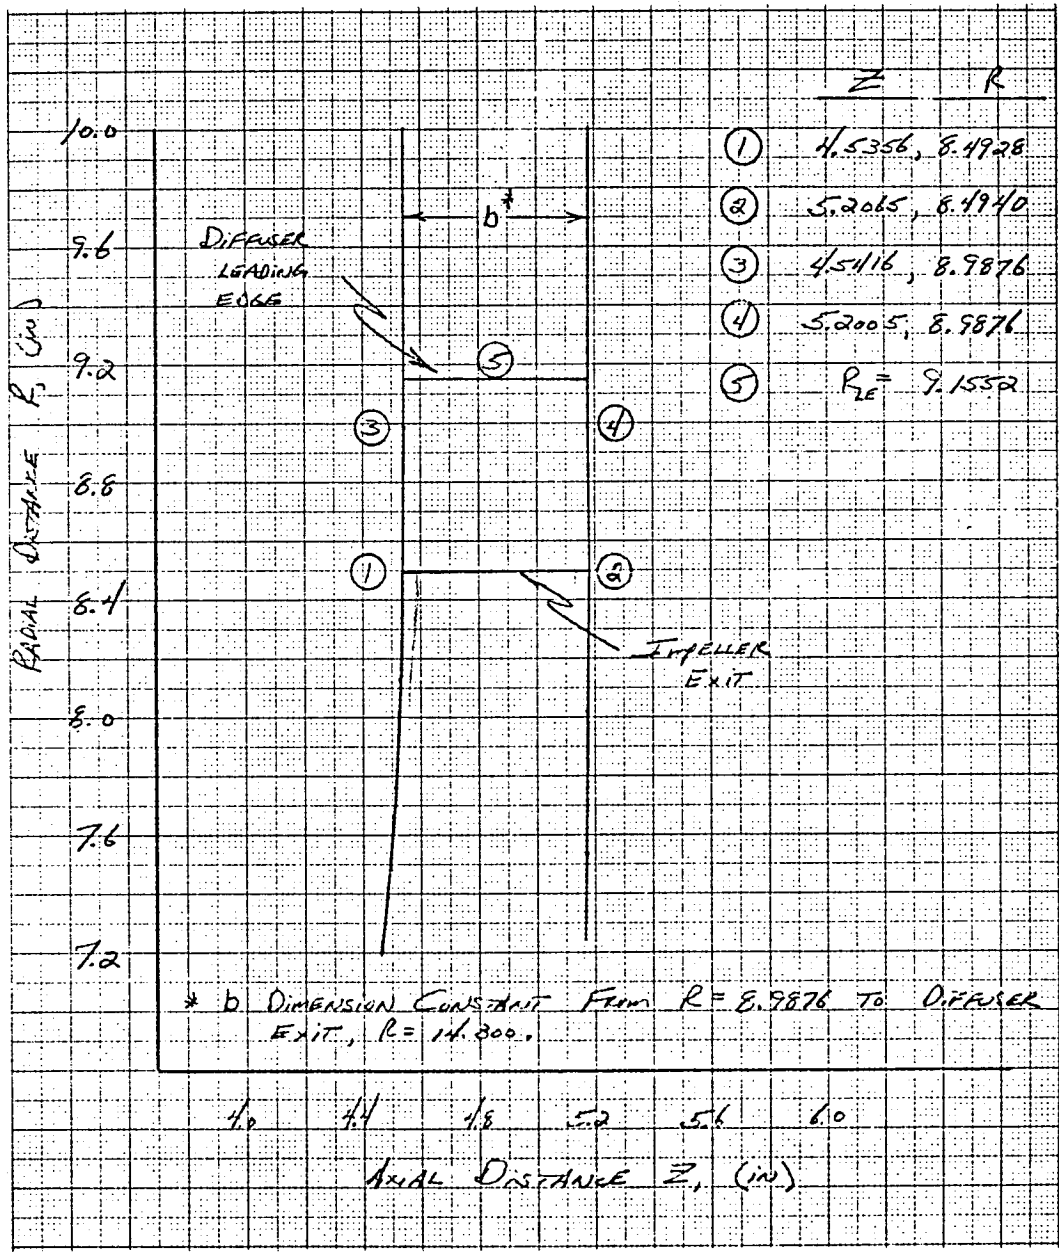 Z R
① 4.5356, 8.4928
② 5.2065, 8.4940
③ 4.5416, 8.9876
④ 5.2005, 8.9876
⑤ RLE = 9.1552
10.0
9.6
9.2
8.8
8.4
8.0
7.6
7.2
RADIAL DISTANCE R, (IN)
b*
DIFFUSER
LEADING
EDGE
⑤
③
④
①
②
IMPELLER
EXIT
* b DIMENSION CONSTANT FROM R = 8.9876 TO DIFFUSER
EXIT, R = 14.300.
4.0 4.4 4.8 5.2 5.6 6.0
AXIAL DISTANCE Z, (IN)